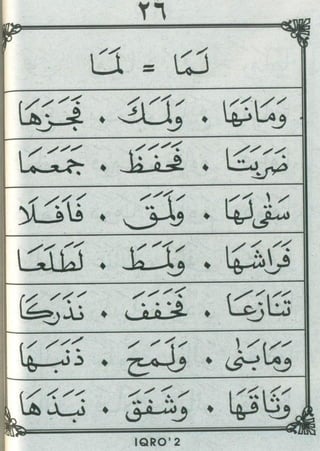 ٢٦
لَمَا = لَمَا
وَمَانَهَا ٠ وَلَمَكَ ٠ فَجَزَهَا
ضَرَبَتَا ٠ فَحَفَظَ ٠ جَمَعَمَا
سَقٰى لَهَا ٠ وَلَمَقَ ٠ فَاَفَلَا
فَرَاشَهَا ٠ وَلَمَطَ ٠ لَطَلَعَا
تَنَازَعَا ٠ فَخَفَفَ ٠ نَذَرَكَا
وَمَابَنٰى ٠ وَلَمَحَ ٠ ذَنَبَهَا
وَثَاقَهَا ٠ وَشَفَقَ ٠ نَبَذَهَا
IQRO' 2